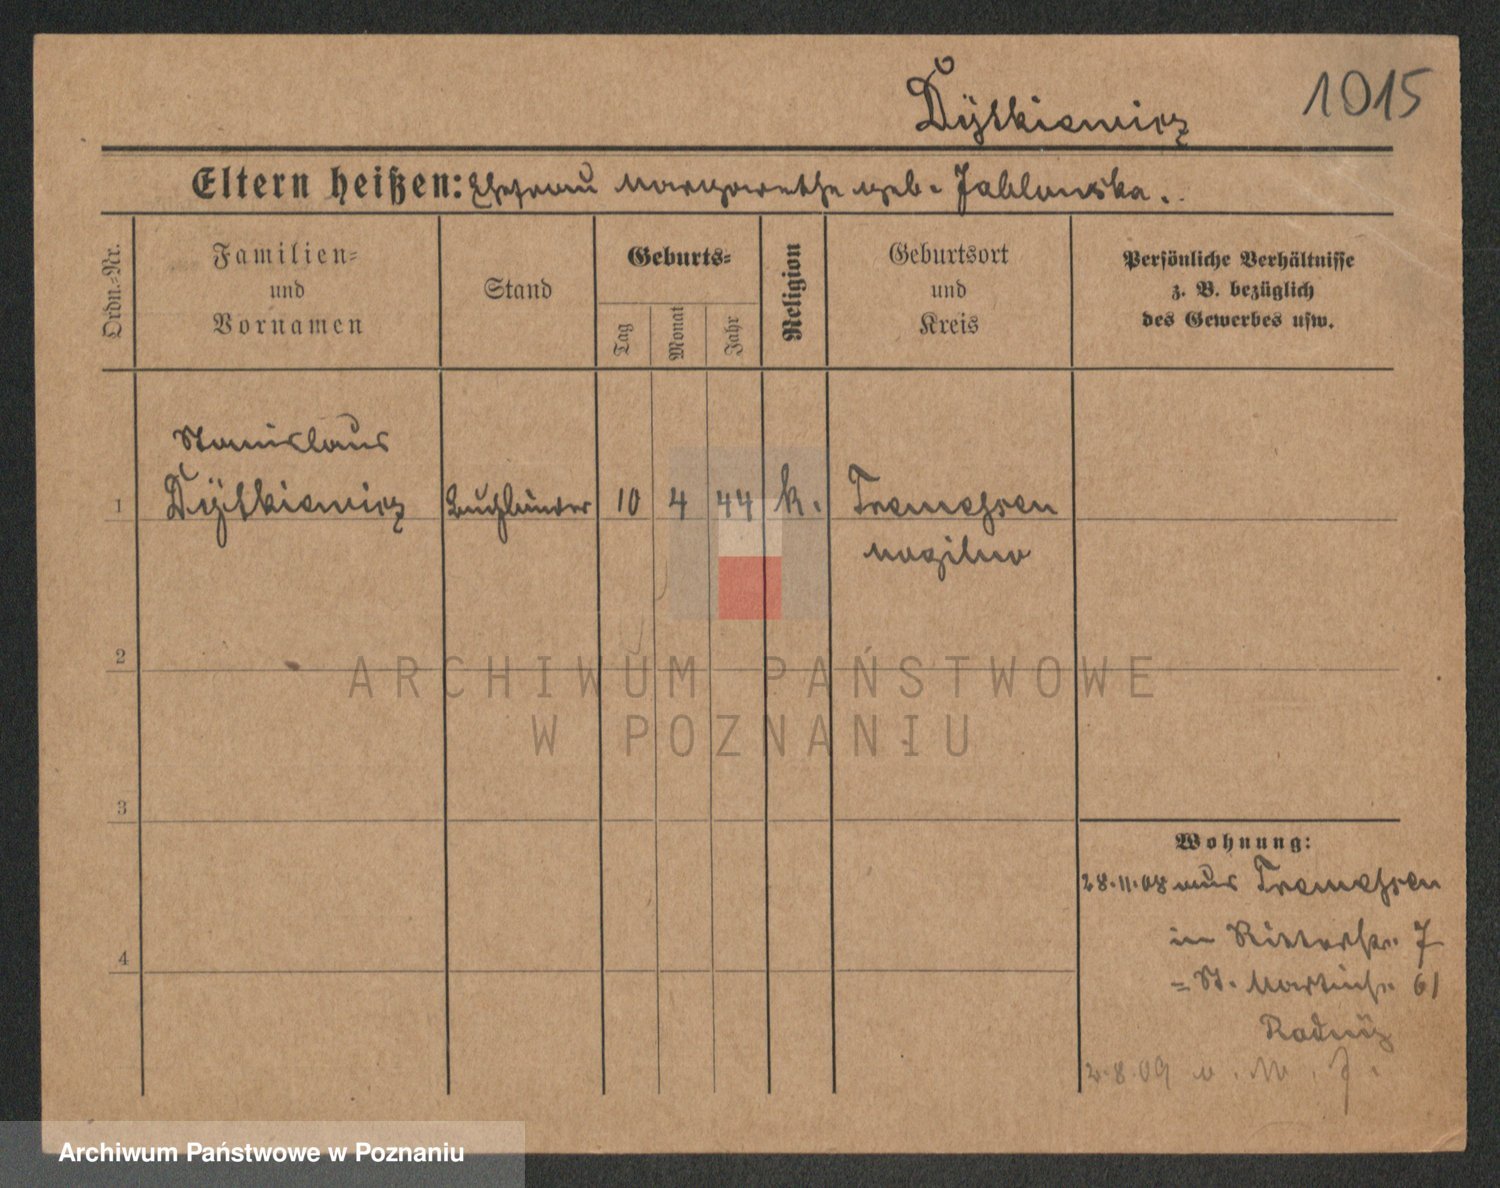 Dÿtkiewicz 1015
Eltern heißen: Ehefrau Margarethe geb. Jablonska.
Ordn.-Nr. Familien- und Vornamen Stand Geburts- Tag Monat Jahr Religion Geburtsort und Kreis Persönliche Verhältnisse z. B. bezüglich des Gewerbes usw.
Stanislaus
1 Dÿtkiewicz 10 4 44 k. Tremessen
Mogilno
2
3
Wohnung:
28.11.08 aus Tremessen
in Ritterstr. 7
4
= St. Martinstr. 61
2.8.09
ARCHIWUM PAŃSTWOWE
W POZNANIU
Archiwum Państwowe w Poznaniu